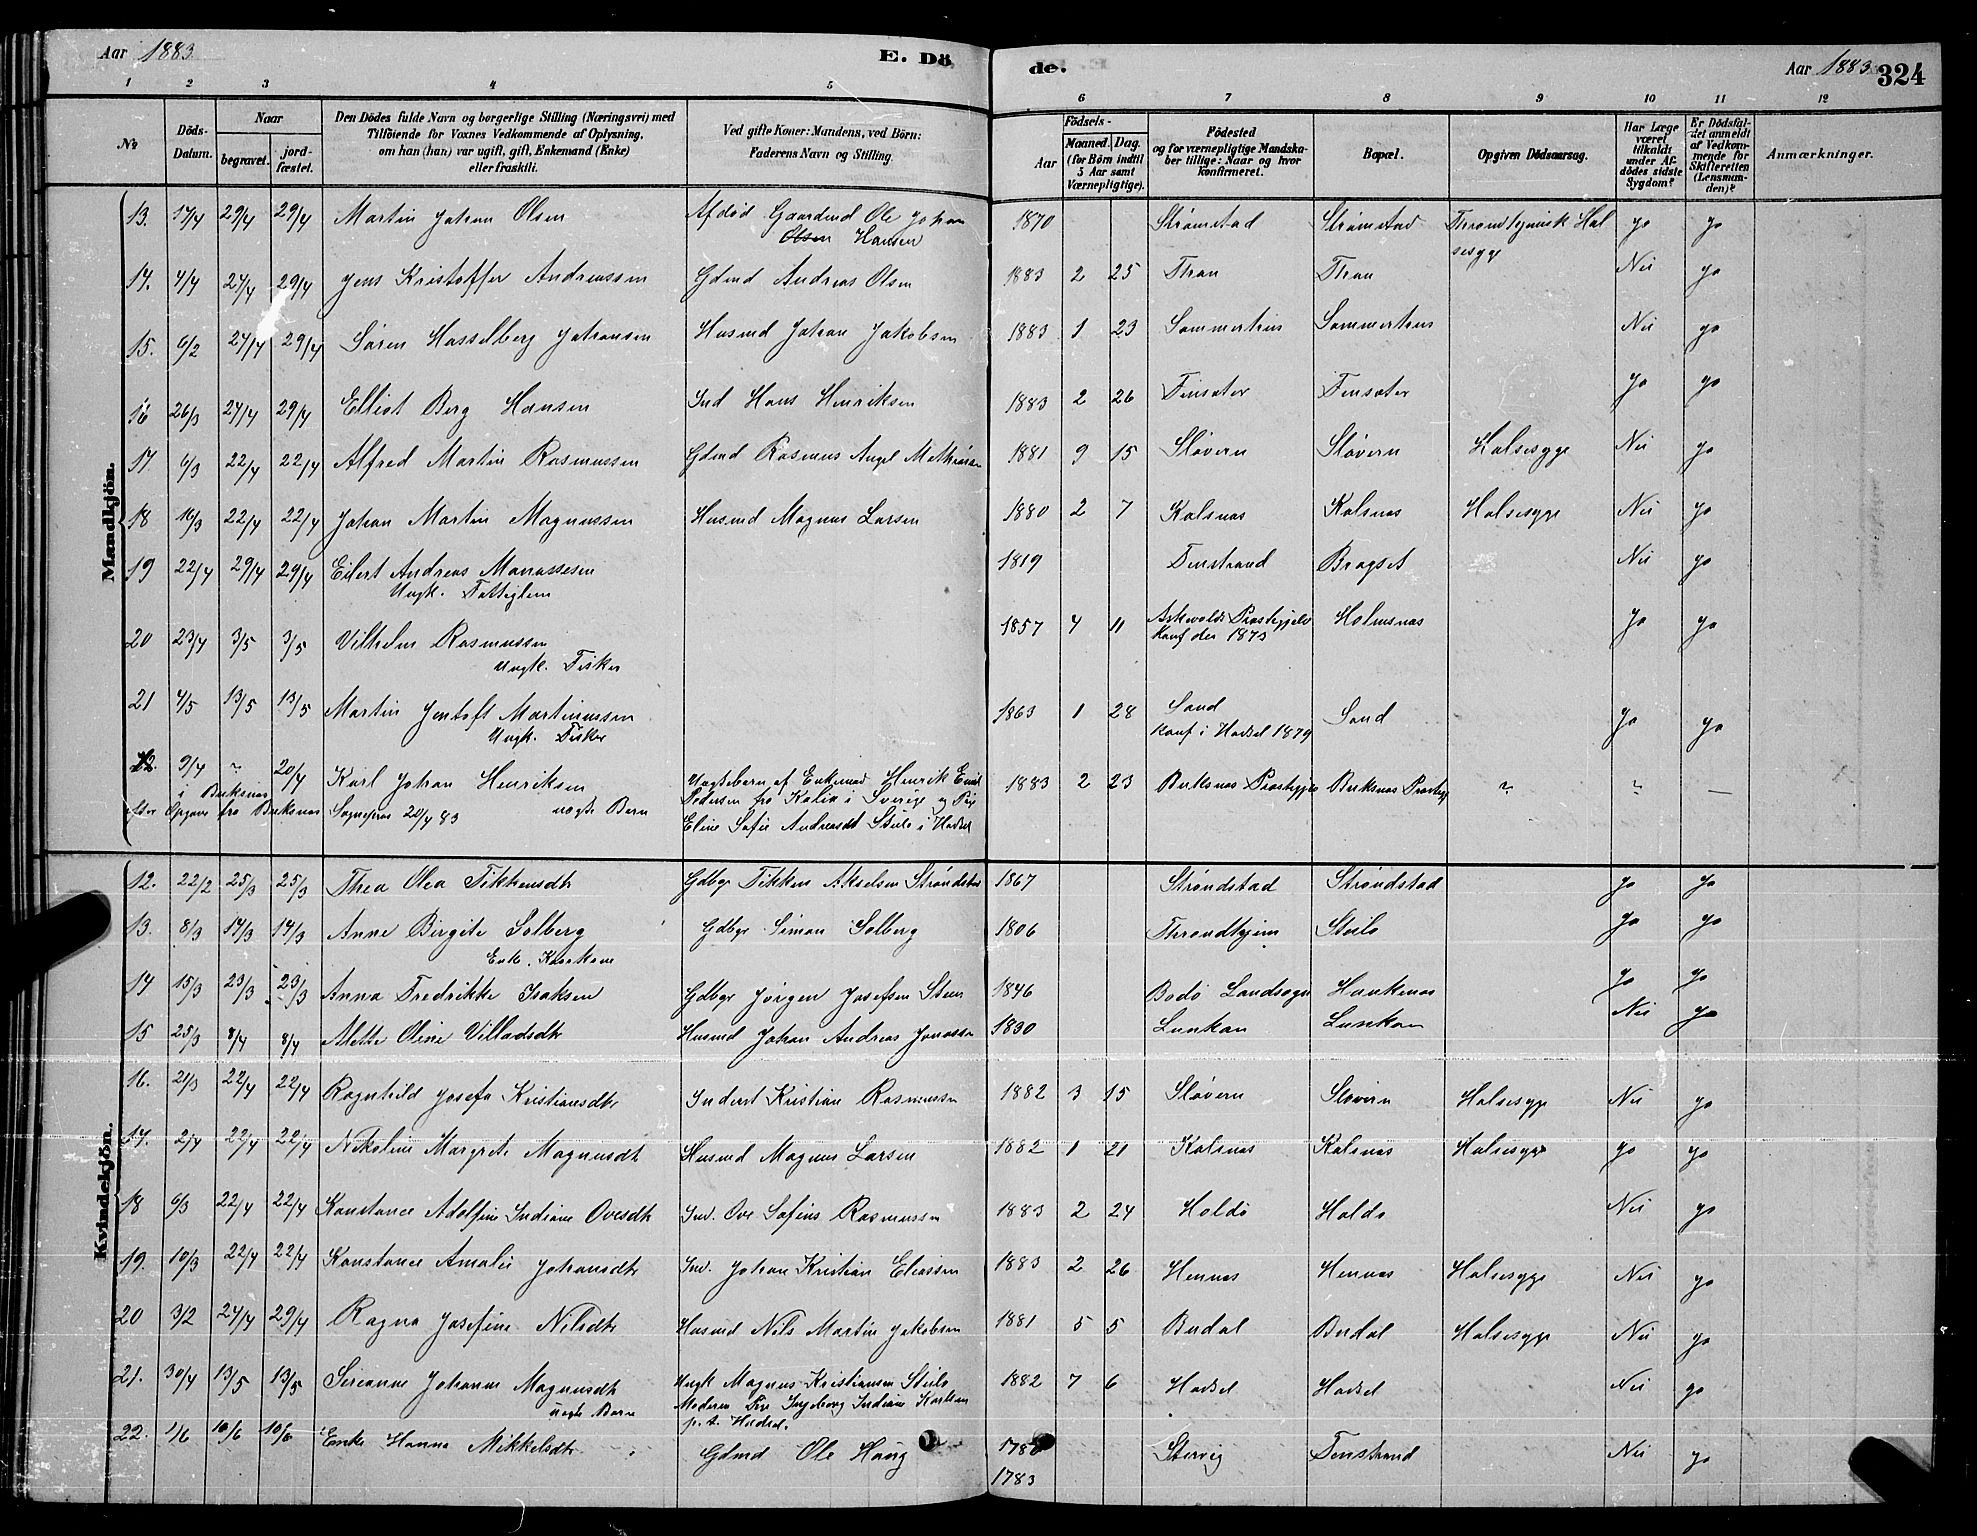 Aar 1883
E. Dö
de.
Aar 1883
324
1 2 3 4 5 6 7 8 9 10 11 12
No
Döds-Datum.
Naar
begravet.
jord-fæstet.
Den Dödes fulde Navn og borgerlige Stilling (Næringsvei) med
Tilföiende for Voxnes Vedkommende af Oplysning,
om han (hun) var ugift, gift, Enkemand (Enke)
eller fraskilt.
Ved gifte Koner: Mandens, ved Börn:
Faderens Navn og Stilling.
Födsels-
Aar
Maaned. Dag.
(for Börn indtil
5 Aar samt
Værnepligtige).
Födested
og for værnepligtige Mandska-
ber tillige: Naar og hvor
konfirmeret.
Bopæl.
Opgiven Dödsaarsag.
Har Læge
været
tilkaldt
under Af-
dödes sidste
Sygdom?
Er Dödsfal-
det anmeldt
af Vedkom-
mende for
Skifteretten
(Lensman-
den)?
Anmærkninger.
Mandkjön.
13. 17/4 29/4 29/4 Martin Johan Olsen Afdöd Gaardmd Ole Johan 1870 Strømstad Strømstad Throndhjemsk Hal Jo Jo
Olsen Hansen sesyge
14. 4/4 24/4 29/4 Jens Kristoffer Andreassen Gdmd Andreas Olsen 1883 2 25 Thran Thran Nei Jo
15. 6/2 24/4 29/4 Søren Hasselberg Johansen Husmd Johan Jakobsen 1883 1 23 Nei Jo
16 26/3 24/4 29/4 Elliot Berg Hansen Ind Hans Henriksen 1883 2 26 Finsæter Finsæter Jo Jo
17 6/3 22/4 22/4 Alfred Martin Rasmussen Gdmd Rasmus Angel 1881 9 15 Sløvern Sløvern Halsesyge Nei Jo
18 16/3 22/4 22/4 Johan Martin Magnussen Husmd Magnus Larsen 1880 2 7 Kalsnas Kalsnas Halsesyge Nei Jo
19 22/4 29/4 29/4 Eilert Andreas Manassesen 1819 Finstrand Bragset Nei Jo
Ungk. Fattiglem
20 23/4 3/5 3/5 Vilhelm Rasmussen 1857 4 11 Askevolds Prastegjeld Holmsnas Jo Jo
Ungk. Fisker konf der 1873
21 4/5 13/5 13/5 Martin Jentoft Martinussen 1863 1 28 Sand Sand Jo Jo
Ungk. Fisker konf i Hadsel 1879
22. 9/4 " 20/4 Karl Johan Henriksen Uægtebarn af Enkemd Henrik Emil 1883 2 23 Buksnas Prastegjeld Buksnas Prastegj " " —
i Buksnas
Pedersen fra Kalix i Sverige og Pige
efter Opgave fra Buksnas Sognepras 20/4 83 uægte Barn
Eline Sofie Andreasdt Steilo i Hadsel
Kvindekjön.
12. 22/2 25/3 25/3 Thea Olea Fikkensdtr Gdbgr Fikken Akselsen 1867 Strøndstad Strøndstad Jo Jo
13. 8/3 14/3 14/3 Anne Birgite Solberg Gdbgr Simon Solberg 1806 Throndhjem Steilo Jo Jo
Enke.
14 15/3 23/3 23/3 Anna Fredrikke Isaksen Gdbgr Jörgen Josefsen 1846 Bodö Landsogn Haukenas Jo Jo
15 25/3 8/4 8/4 Alette Oline Villadsdtr Husmd Johan Andreas Jonassen 1830 Lunkan Lunkan Nei Jo
16. 21/3 22/4 22/4 Ragnhild Josefa Kristiansdtr Inderst Kristian Rasmussen 1882 3 15 Sløvern Sløvern Halsesyge Nei Jo
17. 2/4 22/4 22/4 Nikoline Margrete Magnusdtr Husmd Magnus Larsen 1882 1 21 Kalsnas Kalsnas Halsesyge Jo Jo
18 6/3 22/4 22/4 Konstance Adolfine Indiane Ovesdtr Ind. Ove Sofius Rasmussen 1883 2 24 Holdö Holdö Nei Jo
19. 10/3 22/4 22/4 Konstance Amalie Johansdtr Ind. Johan Kristian Eliassen 1883 2 26 Hennas Hennas Halsesyge Nei Jo
20 3/2 24/4 29/4 Ragna Josefine Nilsdtr Husmd Nils Martin Jakobsen 1881 5 5 Budal Budal Halsesyge Nei Jo
21. 30/4 13/5 13/5 Serianne Johanne Magnusdtr Ungk Magnus Kristiansen Steilo 1882 7 6 Hadsel Hadsel Nei Jo
uægte Barn Moderen Pige Ingeborg Indiane Karlsen
p.t. Hadsel.
22. 1/6 10/6 10/6 Enke Hanna Mikkelsdtr Gdmd Ole Haug 1780 Storvig Finstrand Nei Jo
1783